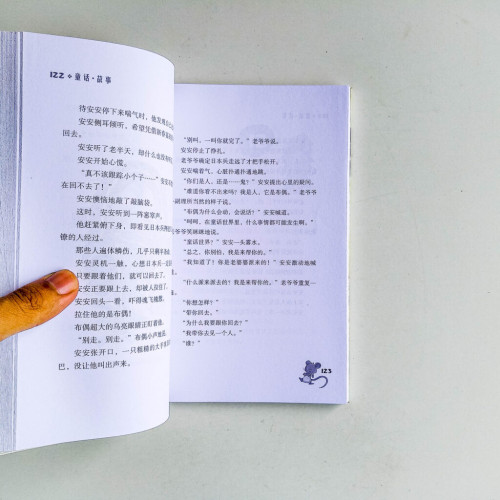 122 童话·故事
待安安停下来喘气时，他发现自己
安安侧耳倾听，希望凭借
回去。
安安听了老半天，却什么也没
安安开始心慌。
“真不该跟踪小个子……”安安
在回不去了！”
安安懊恼地敲了敲脑袋。
这时，安安听到一阵嘉
他赶紧俯下身，即看见日本兵押
镣的人经过。
那些人遍体鳞伤，几乎只剩半
安安灵机一触，心想日本兵
只要跟着他们，就可以回去了。
安安正要跟上去，却被人拉住了。
安安回头一看，吓得魂飞魄散，
拉住他的是布偶！
布偶超大的乌亮眼睛正盯着他。
“别走。别走。”布偶小声地说。
安安张开口，一只粗糙的大手
巴，没让他叫出声来。
“别叫，一叫你就完了。”老爷爷说。
安安停止了挣扎。
老爷爷确定日本兵走远了才把手松开。
安安喘着气，心脏扑通扑通地跳。
“你们是人，还是——鬼？”安安提出心里的疑问。
“难道你看不出来吗？我是人，它是布偶。”老爷爷
副理所当然的样子说。
“布偶为什么会动，会说话？”安安喊道。
“呵呵，在童话世界里，什么事情都可能发生啊。”
爷爷笑眯眯地说。
“童话世界？”安安一头雾水。
“总之，你别怕，我是来帮你的。”
“我知道了！你是老婆婆派来的！”安安激动地喊
“什么派来派去的？我是来帮你的。”老爷爷重复一
“你想怎样？”
“带你回去。”
“为什么我要跟你回去？”
“我带你去见一个人。”
“谁？”
123